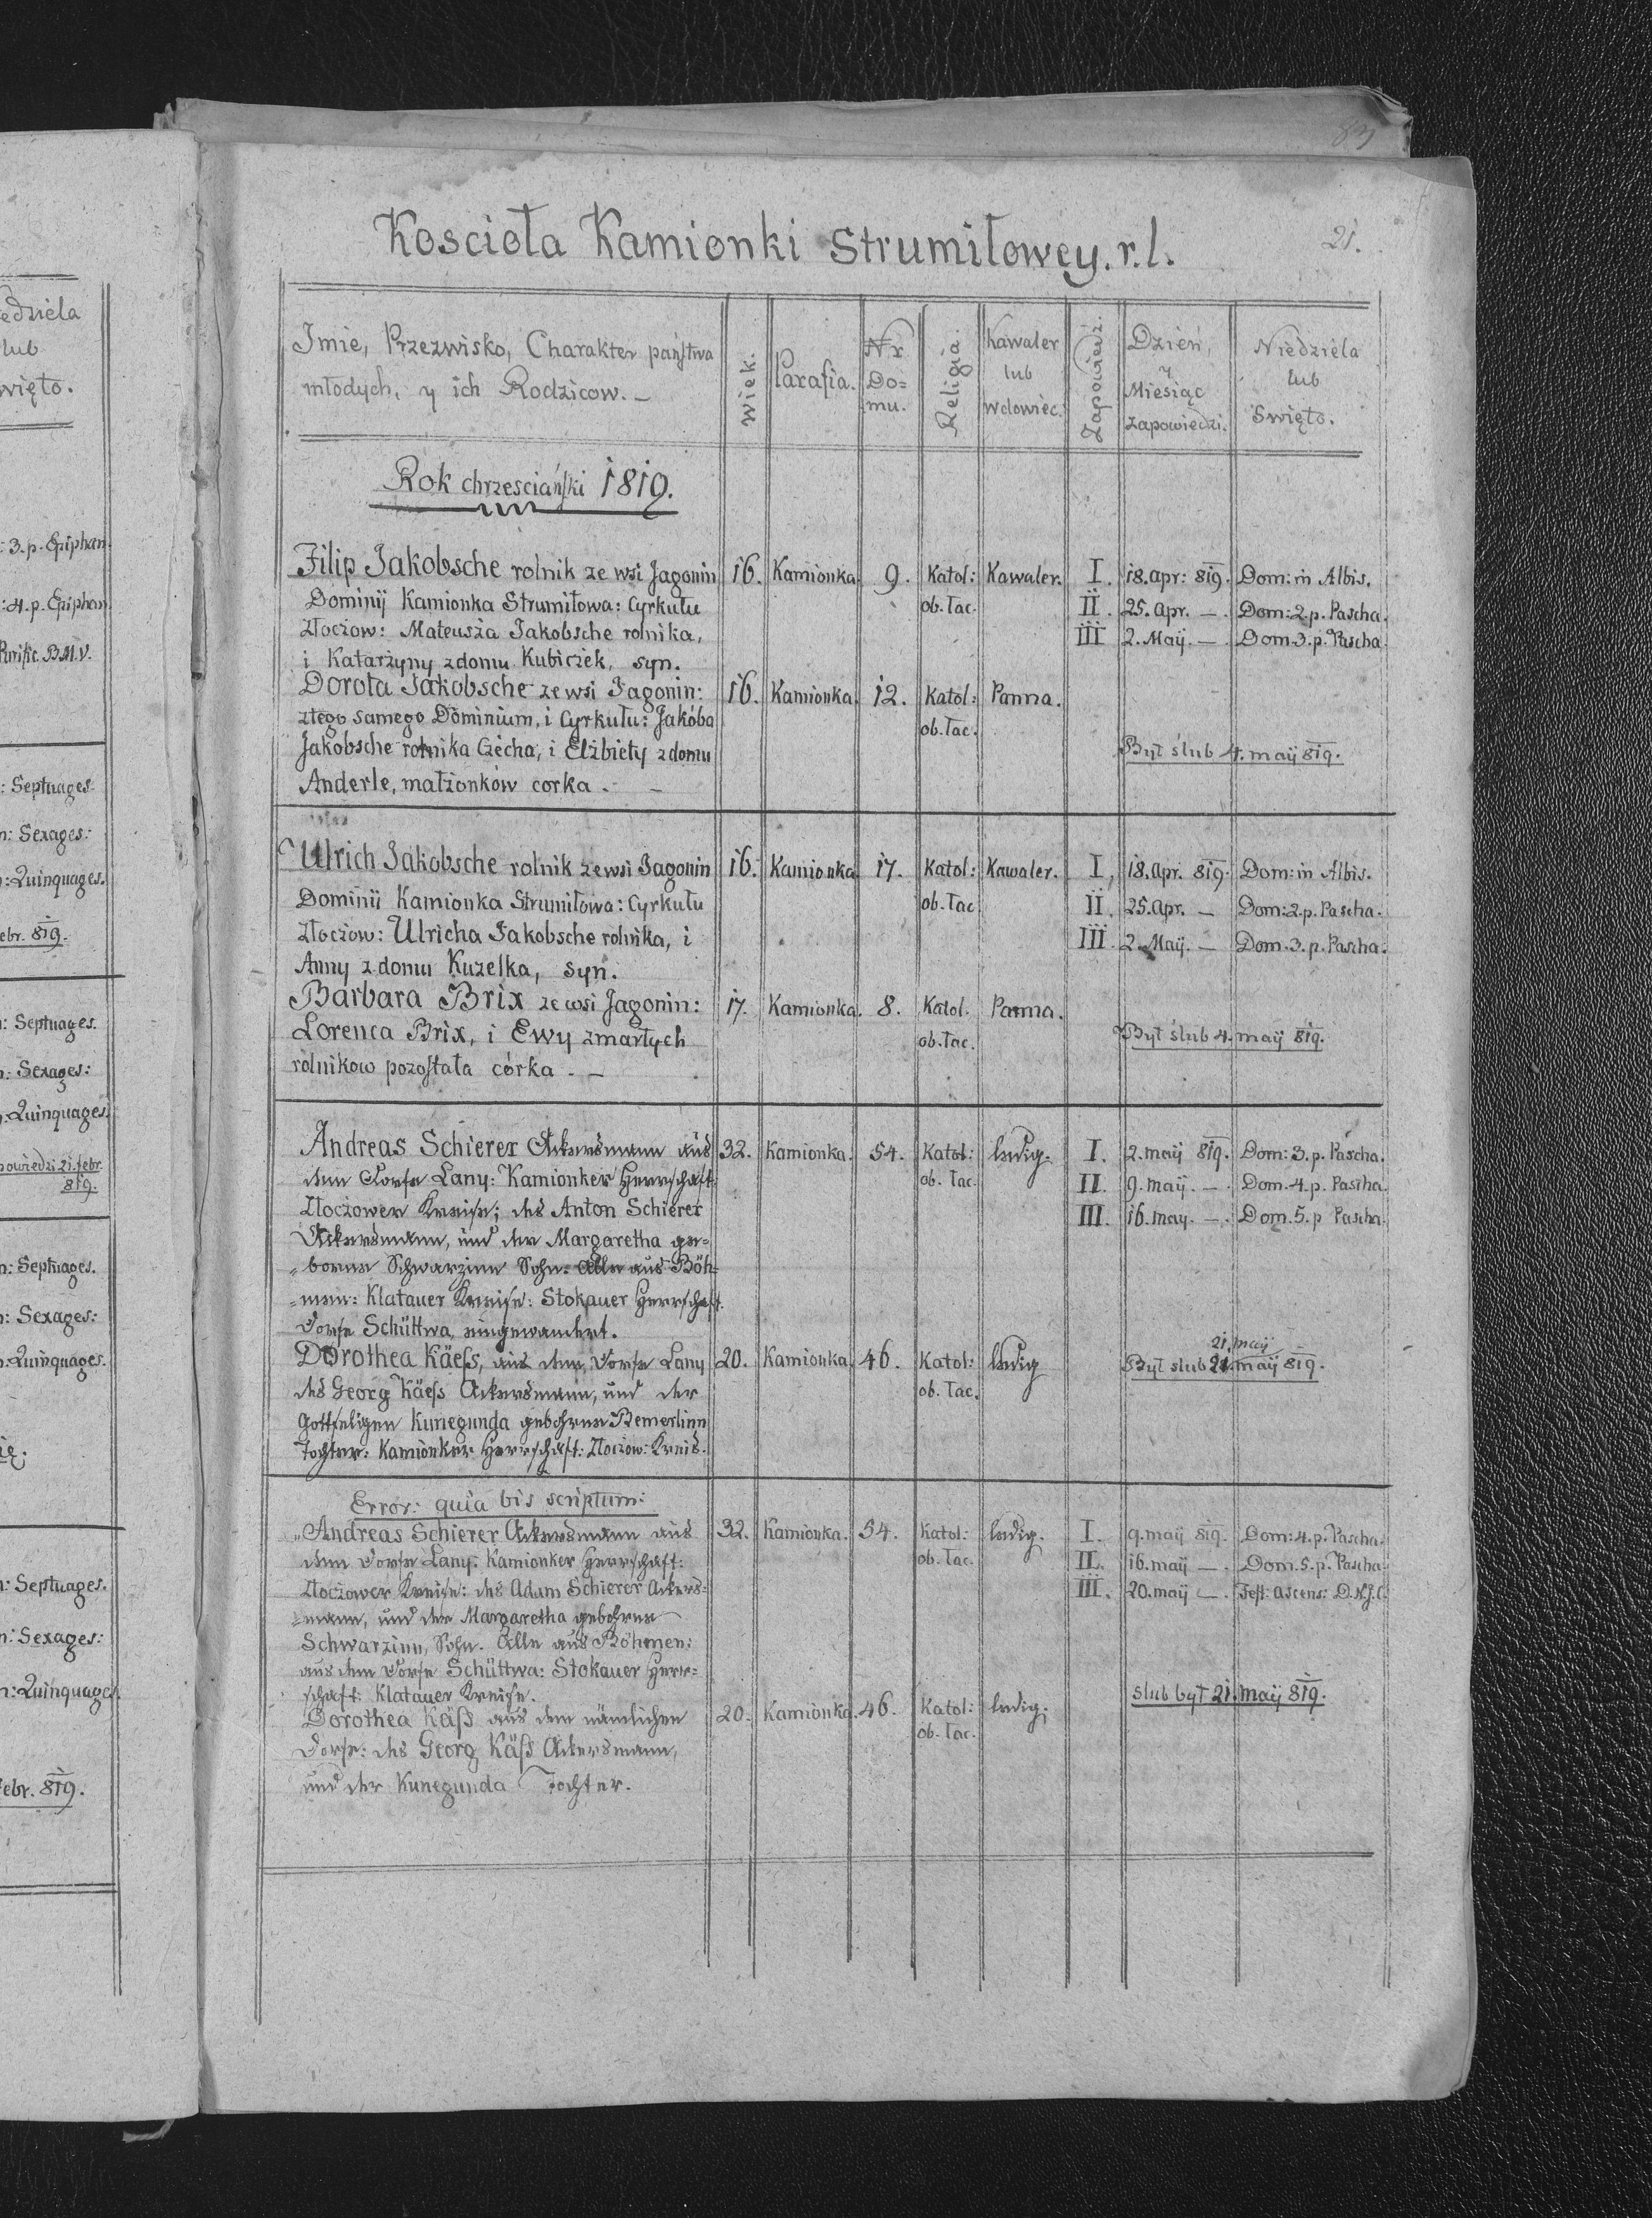 83
21.
Kościoła Kamionki Strumiłowey. r. l.
Imie, Przezwisko, Charakter państwa
młodych, y ich Rodzicow. —
Wiek.
Parafia.
Nr
Do=
mu.
Religia.
Kawaler
lub
Wdowiec.
Zapowiedz.
Dzień,
y
Miesiąc
zapowiedzi.
Niedziela
lub
Swięto.
Rok chrzesciański 1819.
Filip Jakobsche rolnik ze wsi Jagonin 16. Kamionka 9. Katol: Kawaler. I. 18. apr: 819. Dom: in Albis.
Dominij Kamionka Strumiłowa: Cyrkułu ob. łac. II. 25. apr. —. Dom: 2. p. Pascha.
Złoczow: Mateusza Jakobsche rolnika, III 2. Maij. —. Dom. 3. p. Pascha.
i Katarzyny z domu Kubiczek, syn.
Dorota Jakobsche ze wsi Jagonin: 16. Kamionka. 12. Katol: Panna.
z tego samego Dominium, i Cyrkułu: Jakóba ob. łac.
Jakobsche rolnika Czecha, i Elżbiety z domu Był ślub 4. maij 819.
Anderle, małżonków corka. —
Ulrich Jakobsche rolnik ze wsi Jagonin 16. Kamionka 17. Katol: Kawaler. I, 18. apr. 819. Dom: in Albis.
Dominii Kamionka Strumiłowa: Cyrkułu ob. łac II. 25. apr. — Dom: 2. p. Pascha.
Złoczow: Ulricha Jakobsche rolnika, i III. 2. Maij. — Dom. 3. p. Pascha.
Anny z domu Kuzelka, syn.
Barbara Brix ze wsi Jagonin: 17. Kamionka. 8. Katol. Panna.
Lorenca Brix, i Ewy zmarłych ob. łac. Był ślub 4. maij 819.
rolnikow pozostała córka. —
Andreas Schierer Ackersmann aus 32. Kamionka. 54. Katol: ledig. I. 2. maij 819. Dom: 3. p. Pascha.
dem Dorfe Lany: Kamionker Herrschaft: ob. łac. II. 9. maij. —. Dom. 4. p. Pascha.
Złoczower Kreise; des Anton Schierer III. 16. may. —. Dom. 5. p Pascha.
Ackersmann, und der Margaretha ge=
=borne Schwarzinn Sohn: Alle aus Böh=
=men: Klatauer Kreise: Stokauer Herrschaft.
Dorfe Schüttwa, eingewandert.
21. maij
Dorothea Käess, aus dem Dorfe Lany 20. Kamionka. 46. Katol: ledig Był slub 21. maij 819.
des Georg Käess Ackersmann, und der ob. łac.
Gottseligen Kunegunda gebohrne Bemerlinn
Tochter: Kamionker Herrschaft: Złoczow: Kreis.
Error: quia bis scriptum:
Andreas Schierer Ackersmann aus 32. Kamionka. 54. Katol: ledig. I. 9. maij 819. Dom: 4. p. Pascha.
dem Dorfe Lany: Kamionker Herrschaft: ob. łac. II. 16. maij —. Dom. 5. p. Pascha.
Złoczower Kreise: des Adam Schierer Ackers= III. 20. maij —. Fest: Ascens: D.N.J.C.
=mann, und der Margaretha gebohrne
Schwarzinn, Sohn. Alle aus Böhmen:
aus dem Dorfe Schüttwa: Stokauer Herr=
schaft: Klatauer Kreise. slub był 21. maij 819.
Dorothea Käss aus dem nämlichen 20. Kamionka. 46. Katol: ledig;
Dorfe: des Georg Käss Ackersmann, ob. łac.
und der Kunegunda Tochter.
edziela
lub
więto.
: 3. p. Epiphan.
: 4. p. Epiphan
Purific. B.M.V.
: Septuages.
n: Sexages:
: Quinquages.
ebr. 819.
: Septuages.
: Sexages:
. Quinquages.
powiedzi 21. febr.
819.
n: Septuages.
: Sexages:
: Quinquages.
: Septuages.
n: Sexages:
n: Quinquages.
febr. 819.